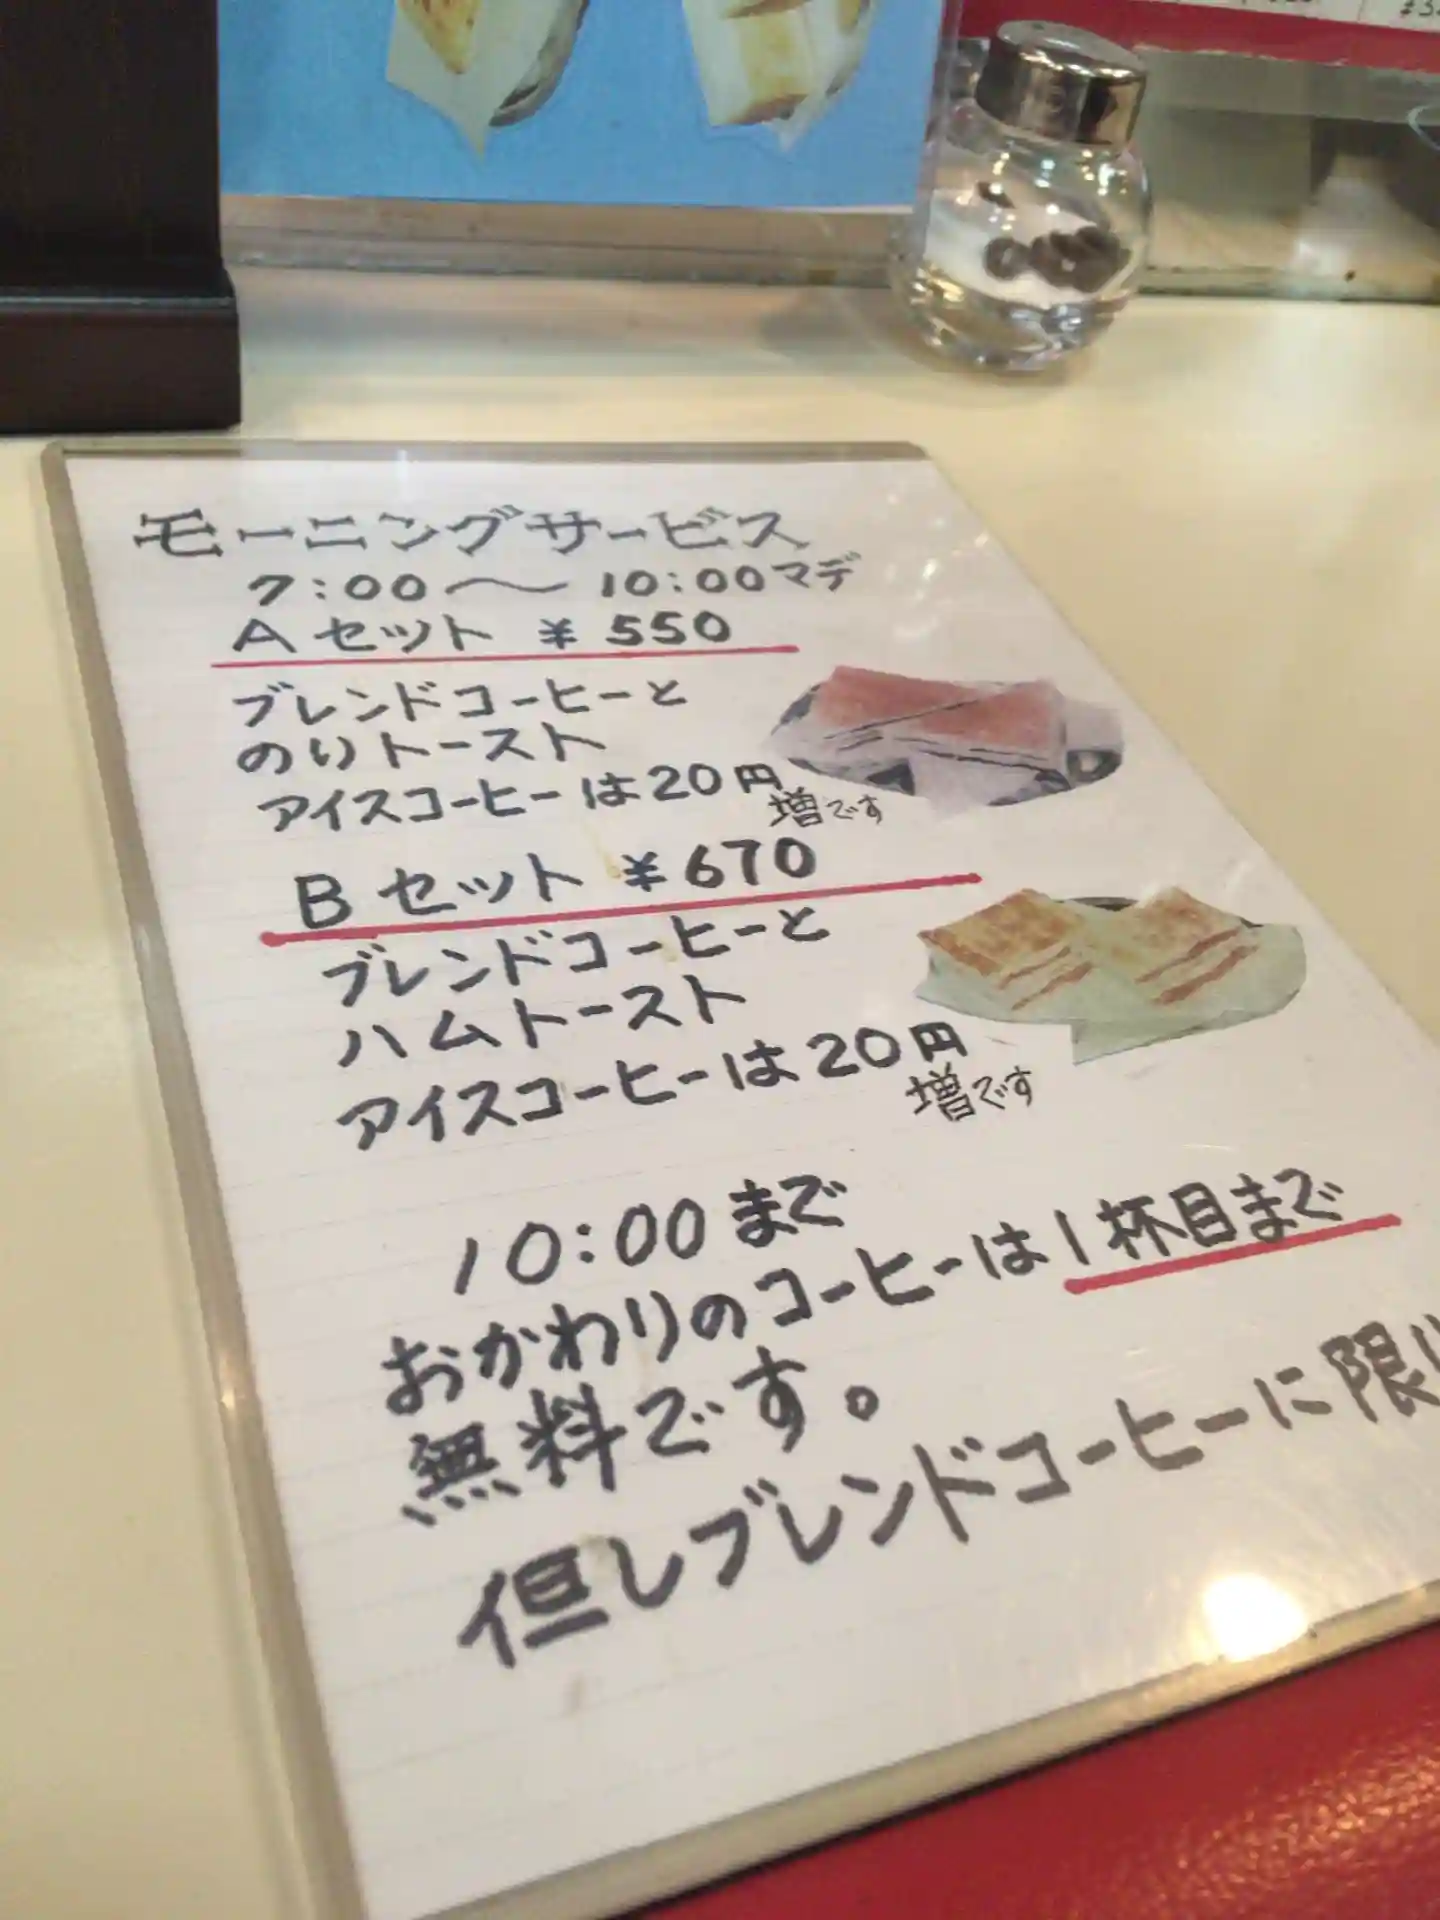 モーニングサービス
7:00〜10:00マデ
Aセット ¥550
ブレンドコーヒーと
のりトースト
アイスコーヒーは20円
増です
Bセット ¥670
ブレンドコーヒーと
ハムトースト
アイスコーヒーは20円
増です
10:00まで
おかわりのコーヒーは1杯目まで
無料です。
但しブレンドコーヒーに限り